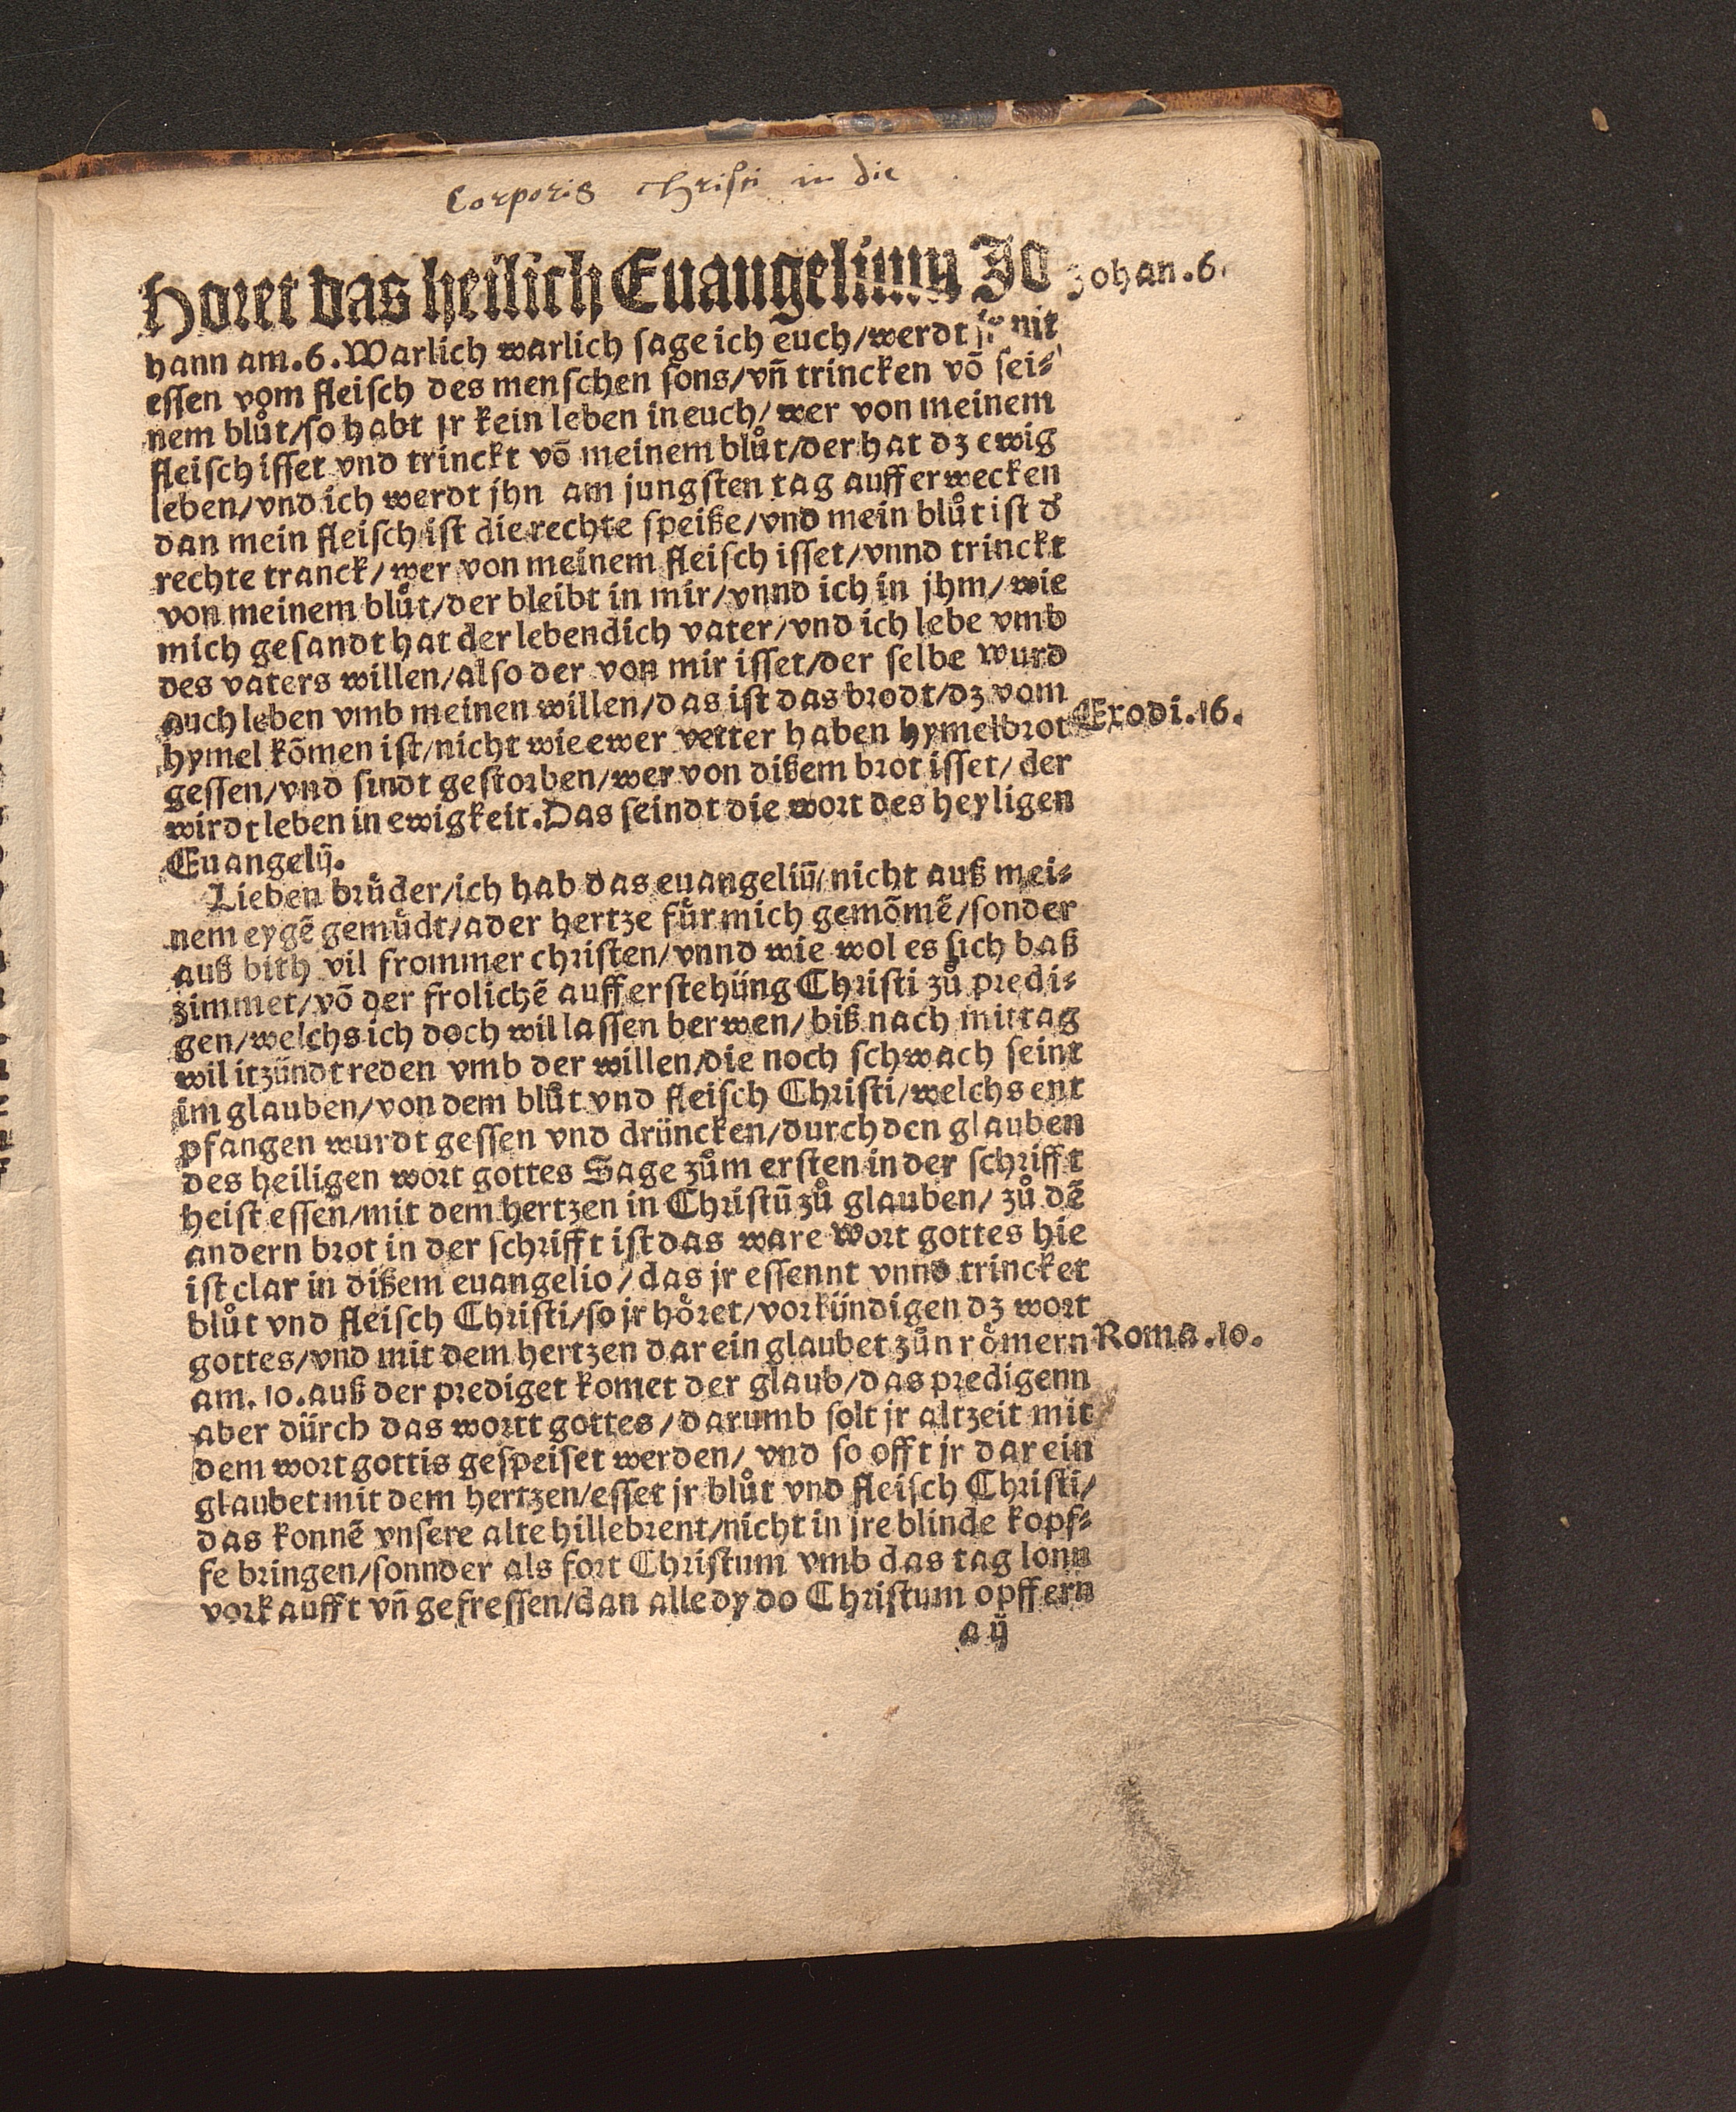 Corporis Christi in die
Horet das heilich Euangelium Jo
Johan.6.
hann am.6.Warlich warlich sage ich euch/werdt jr nit
essen vom fleisch des menschen sons/vñ trincken võ sei⸗
nem blůt/so habt jr kein leben in euch/wer von meinem
fleisch isset vnd trinckt võ meinem blůt/der hat dz ewig
leben/vnd ich werdt jhn am jungsten tag aufferwecken
dan mein fleisch ist die rechte speiße/vnd mein blůt ist d̕
rechte tranck/wer von meinem fleisch isset/vnnd trinckt
von meinem blůt/der bleibt in mir/vnnd ich in jhm/wie
mich gesandt hat der lebendich vater/vnd ich lebe vmb
des vaters willen/also der von mir isset/der selbe wurd
auch leben vmb meinen willen/das ist das brodt/dz vom
hymel kõmen ist/nicht wie ewer vetter haben hymelbrot
Exodi.16.
gessen/vnd sindt gestorben/wer von dißem brot isset/der
wirdt leben in ewigkeit.Das seindt die wort des heyligen
Euangelij.
Lieben brüder/ich hab das euangeliũ/nicht auß mei⸗
nem eygẽ gemüdt/ader hertze für mich gemõmẽ/sonder
auß bith vil frommer christen/vnnd wie wol es sich baß
zimmet/võ der frolichẽ aufferstehüng Christi zů predi⸗
gen/welchs ich doch wil lassen berwen/biß nach mittag
wil itzündt reden vmb der willen/die noch schwach seint
im glauben/von dem blůt vnd fleisch Christi/welchs ent
pfangen wurdt gessen vnd drüncken/durch den glauben
des heiligen wort gottes Sage zům ersten in der schrifft
heist essen/mit dem hertzen in Christũ zů glauben/ zů dẽ
andern brot in der schrifft ist das ware wort gottes hie
ist clar in dißem euangelio/das jr essennt vnnd trincket
blůt vnd fleisch Christi/so jr höret/vorkündigen dz wort
gottes/vnd mit dem hertzen dar ein glaubet zůn römern
Roma.10.
am.10.auß der prediget komet der glaub/das predigenn
aber dürch das wortt gottes/darumb solt jr altzeit mit
dem wort gottis gespeiset werden/ vnd so offt jr dar ein
glaubet mit dem hertzen/esset jr blůt vnd fleisch Christi/
das konnẽ vnsere alte hillebrent/nicht in jre blinde kopf⸗
fe bringen/sonnder als fort Christum vmb das tag lonn
vorkaufft vñ gefressen/dan alle dy do Christum opffern
a ij